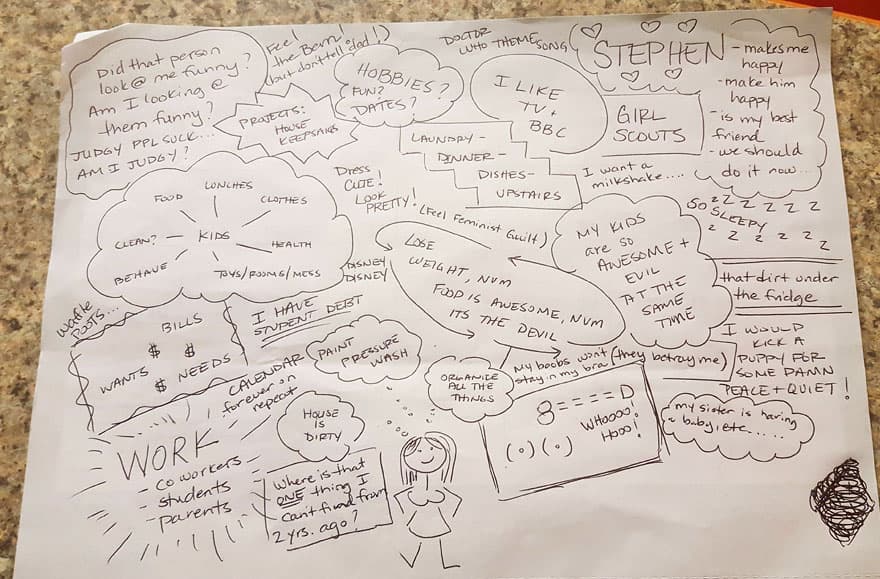 Did that person
look @ me funny?
Am I looking @
them funny?
JUDGY PPL SUCK...
AM I JUDGY?
Feel
the Bern!
(but don't tell dad!)
PROJECTS:
HOUSE
KEEPSAKES
HOBBIES?
(FUN?
DATES?
DOCTOR
WHO THEME SONG
I LIKE
TV +
BBC
STEPHEN
- makes me
happy
- make him
happy
- is my best
friend
- we should
do it now...
GIRL
SCOUTS
LAUNDRY -
DINNER -
DISHES -
UPSTAIRS
I want a
milkshake....
Dress
CUTE!
LOOK
PRETTY!
(Feel Feminist Guilt)
FOOD
LUNCHES
CLOTHES
CLEAN?
KIDS
HEALTH
BEHAVE
TOYS/ROOMS/MESS
DISNEY
DISNEY
LOSE
WEIGHT, NUM
FOOD IS AWESOME, NUM
ITS THE DEVIL
MY KIDS
are so
AWESOME +
EVIL
AT THE
SAME
TIME
SO
SLEEPY
z z z z z z z
z z z z z z
that dirt under
the fridge
I WOULD
KICK A
PUPPY FOR
SOME DAMN
PEACE + QUIET!
Waffle
ROOTS...
BILLS
$ $
WANTS $ NEEDS
I HAVE
STUDENT DEBT
CALENDAR
forever on
repeat
PAINT
PRESSURE
WASH
ORGANIZE
ALL THE
THINGS
My boobs won't
stay in my bra
(they betray me)
8====D
WHOOOO!
HOOO!
(o)(o)
my sister is having
a baby, etc......
HOUSE
IS
DIRTY
WORK
- co workers
- students
- parents
Where is that
ONE thing I
can't find from
2 yrs. ago?